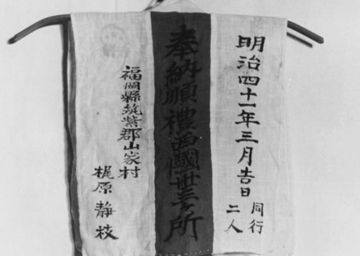 明治四十一年三月吉日
同行
二人
奉納順禮西國卅三ヶ所
福岡縣筑紫郡山家村
梶原静枝